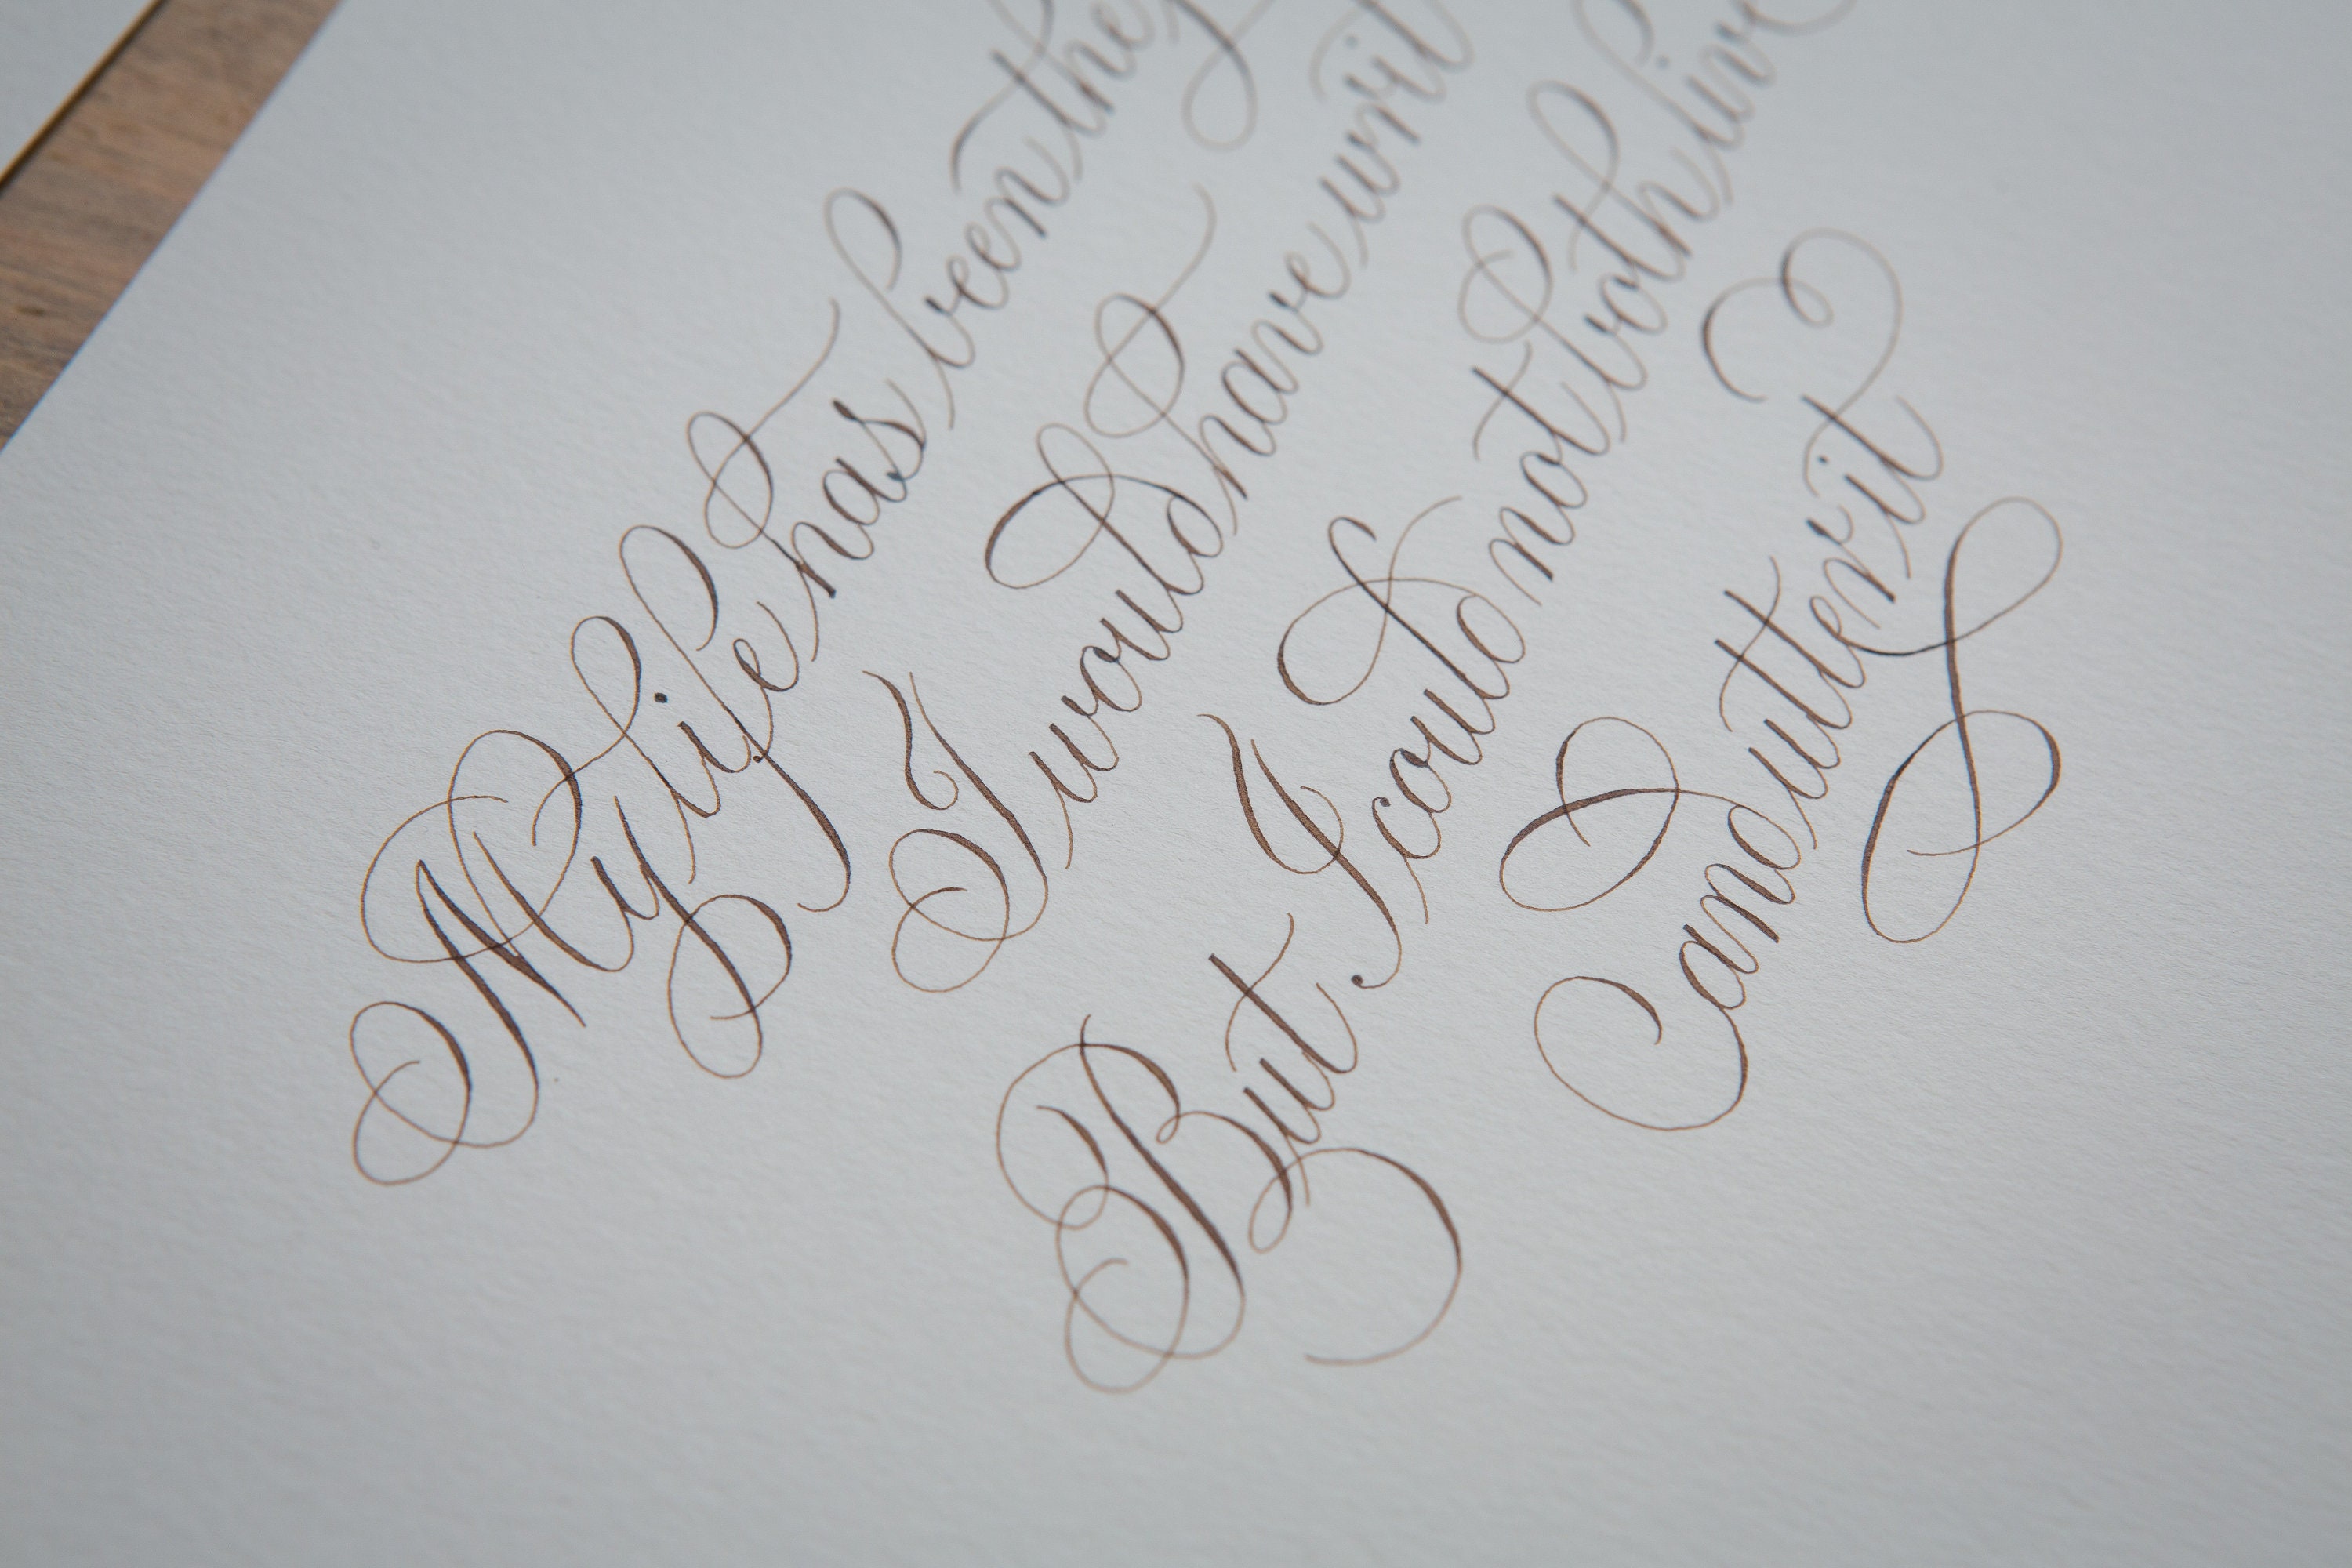 My life has been the
I would have writ
But I could not both live
and utter it